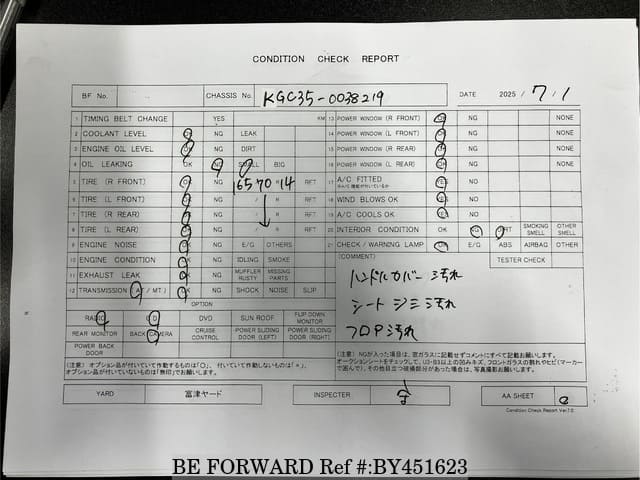 CONDITION CHECK REPORT
BF No. CHASSIS No. KGC35-0038219 DATE 2025 / 7 / 1
1 TIMING BELT CHANGE YES KM
2 COOLANT LEVEL OK NG LEAK
3 ENGINE OIL LEVEL OK NG DIRT
4 OIL LEAKING OK NG SMALL BIG
5 TIRE (R FRONT) OK NG 165 70 R 14 RFT
6 TIRE (L FRONT) OK NG / R RFT
7 TIRE (R REAR) OK NG / R RFT
8 TIRE (L REAR) OK NG / R RFT
9 ENGINE NOISE OK NG E/G OTHERS
10 ENGINE CONDITION OK NG IDLING SMOKE
11 EXHAUST LEAK OK NG MUFFLER RUSTY MISSING PARTS
12 TRANSMISSION (AT/MT) OK NG SHOCK NOISE SLIP
13 POWER WINDOW (R FRONT) OK NG NONE
14 POWER WINDOW (L FRONT) OK NG NONE
15 POWER WINDOW (R REAR) OK NG NONE
16 POWER WINDOW (L REAR) OK NG NONE
17 A/C FITTED YES NG
18 WIND BLOWS OK YES NG
19 A/C COOLS OK YES NG
20 INTERIOR CONDITION OK NG DIRT SMOKING SMELL OTHER SMELL
21 CHECK / WARNING LAMP OK E/G ABS AIRBAG OTHER
(COMMENT) TESTER CHECK
ハンドルカバー汚れ
シートシミ汚れ
フロア汚れ
OPTION
RADIO CD DVD SUN ROOF FLIP DOWN MONITOR
REAR MONITOR BACK CAMERA CRUISE CONTROL POWER SLIDING DOOR (LEFT) POWER SLIDING DOOR (RIGHT)
POWER BACK DOOR
(注意) オプション品が付いていて作動するものは「○」、付いていて作動しないものは「×」、
オプション品が付いていないものは「無印」でお願いします。
(注意) NGが入った場合は、窓ガラスに記載せずコメントにすべて記載お願いします。
オークションシートをチェックして、U3・B3以上の凹みキズ、フロントガラスの割れやヒビ(マーカー
で囲んで)、その他目立つ破損部分があった場合は、写真撮影お願いします。
YARD 富津ヤード INSPECTER AA SHEET
Condition Check Report Ver.7.0
BE FORWARD Ref #:BY451623